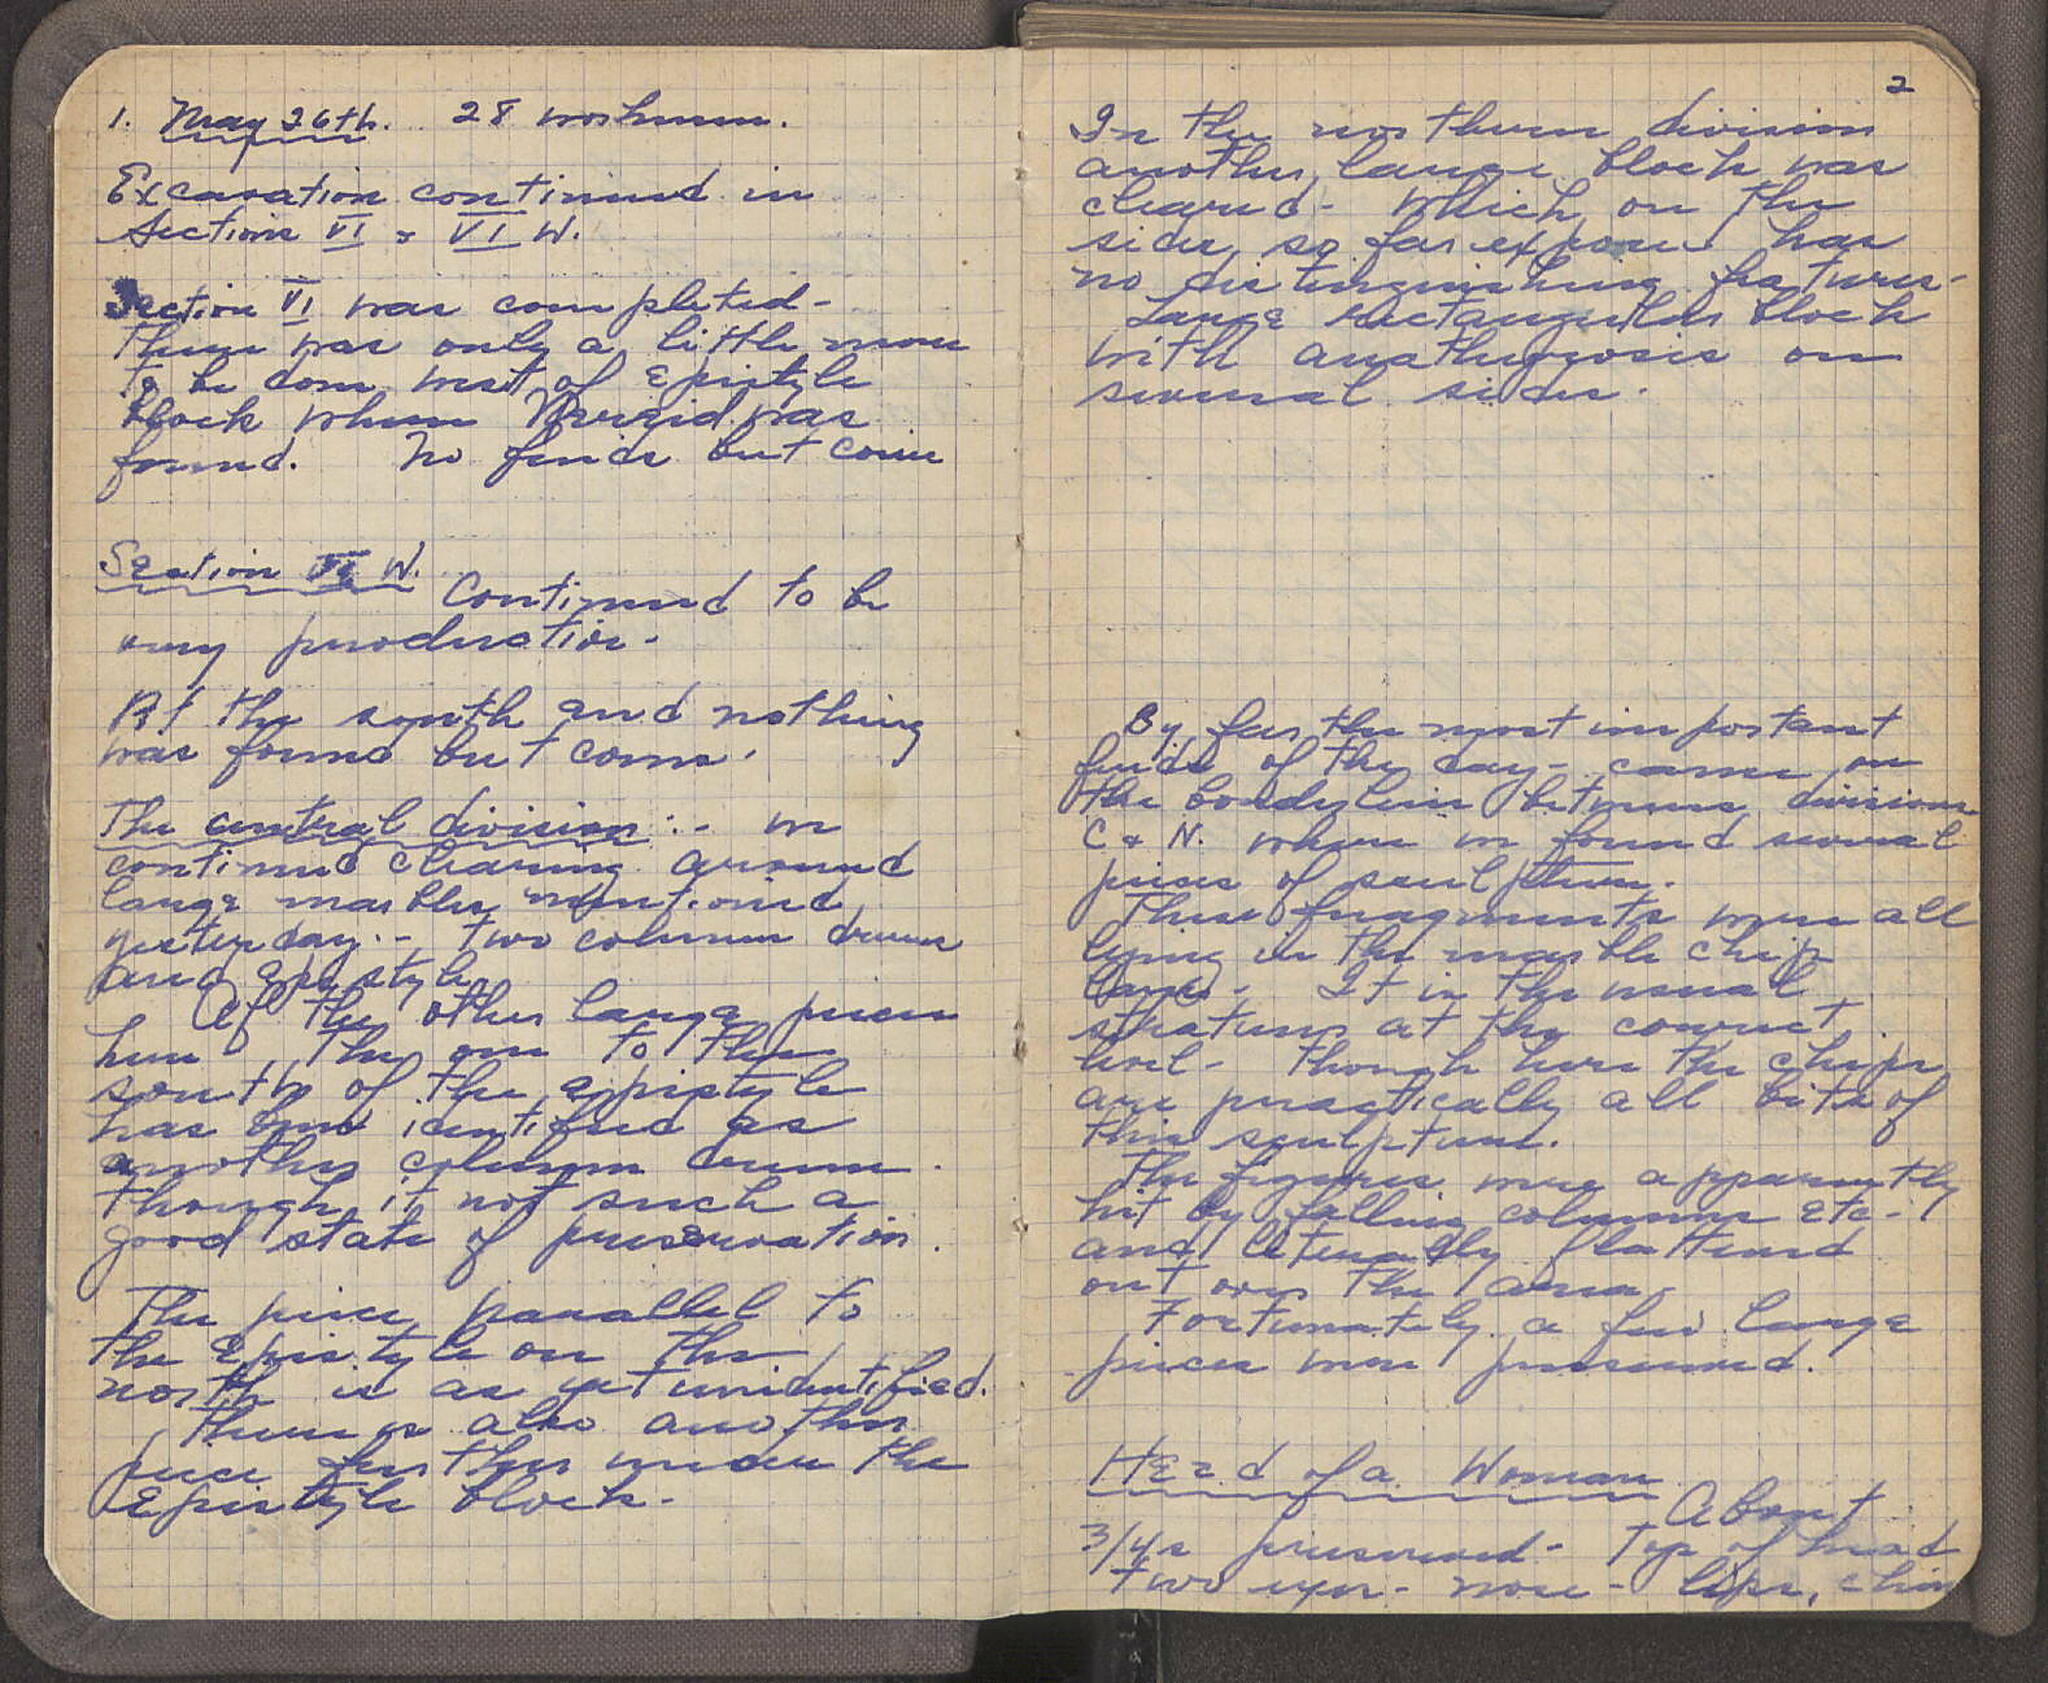 1. May 26th. 28 workmen.
Excavation continued in
Sections VI & VI W.
Section VI was completed-
There was only a little more
to be done west of epistyle
block where Nereid was
found. No finds but coins
Section VI W.
Continued to be
very productive-
At the south end nothing
was found but coins.
The central division :- we
continued clearing around
large marbles mentioned
yesterday:- two column drums
and epistyle
Of the other large pieces
here, the one to the
south of the epistyle
has been identified as
another column drum.
though it not such a
good state of preservation.
The piece parallel to
the epistyle on the
north is as yet unidentified.
There is also another
piece further under the
epistyle block-
2
In the northern division
another large block was
cleared- which on the
sides so far exposed has
no distinguishing features-
Large rectangular block
with anathyrosis on
several sides.
By far the most important
finds of the day- came on
the borderline between divisions
C & N. where we found several
pieces of sculpture.
These fragments were all
lying in the marble chip
layer- It is the usual
stratum at the correct
level- though here the chips
are practically all bits of
this sculpture.
The figures were apparently
hit by falling columns etc-
and literally flattened
out over the area-
Fortunately a few large
pieces were preserved.
Head of a Woman
About
3/4s preserved- Top of head
two eyes- nose- lips, chin